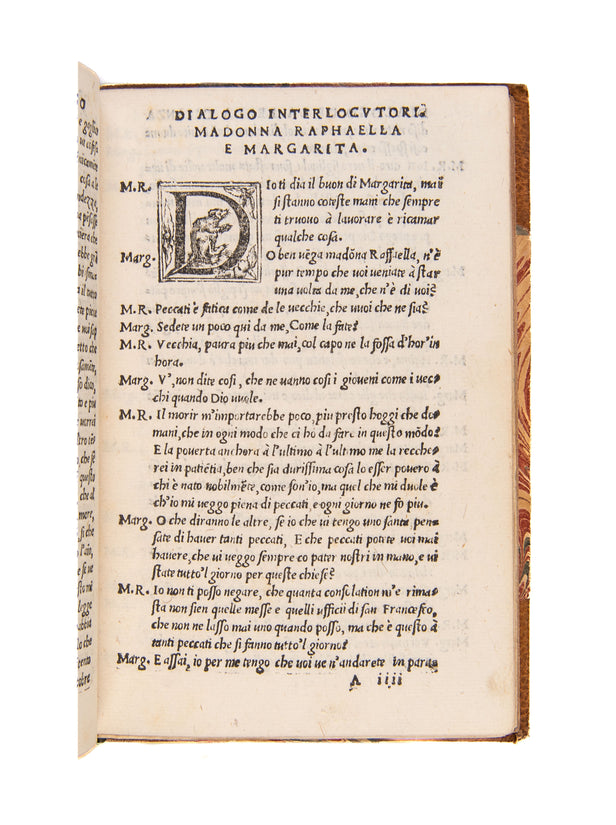 DIALOGO INTERLOCVTORI
MADONNA RAPHAELLA
E MARGARITA.
M.R. DIo ti dia il buon dì Margarita, mai
si stanno coteste mani che sempre
ti truouo à lauorare è ricamar
qualche cosa.
Marg. O ben vẽga madõna Raffaella, n'è
pur tempo che voi ueniate à star
una uolta da me, che n'è di uoi?
M.R. Peccati è fatica come de le vecchie, che vuoi che ne sia?
Marg. Sedete un poco qui da me, Come la fate?
M.R. Vecchia, paura piu che mai, col capo ne la fossa d'hor'in
hora.
Marg. V', non dite cosi, che ne uanno cosi i gioueni come i uec
chi quando Dio uuole.
M.R. Il morir m'importarebbe poco, piu presto hoggi che do
mani, che in ogni modo che ci hò da fare in questo mõdo?
E la pouerta anchora à l'ultimo à l'ultimo me la recche
rei in patiẽtia, ben che sia durissima cosa lo esser pouero à
chi è nato nobilmẽte, come son'io, ma quel che mi duole è
ch'io mi ueggo piena di peccati, e ogni giorno ne fo piu.
Marg. O che diranno le altre, se io che ui tengo uno santa pen
sate di hauer tanti peccati, E che peccati potete uoi mai
hauere, che ui ueggo sempre co pater nostri in mano, e ui
state tutto'l giorno per queste chiese?
M.R. Io non ti posso negare, che quanta consolation m'e rima
sta non sien quelle messe e quelli ufficii di san Francesco,
che non ne lasso mai uno quando posso, ma che è questo à
tanti peccati che si fanno tutto'l giorno?
Marg. E assai, io per me tengo che uoi ue n'andarete in para
A iiii